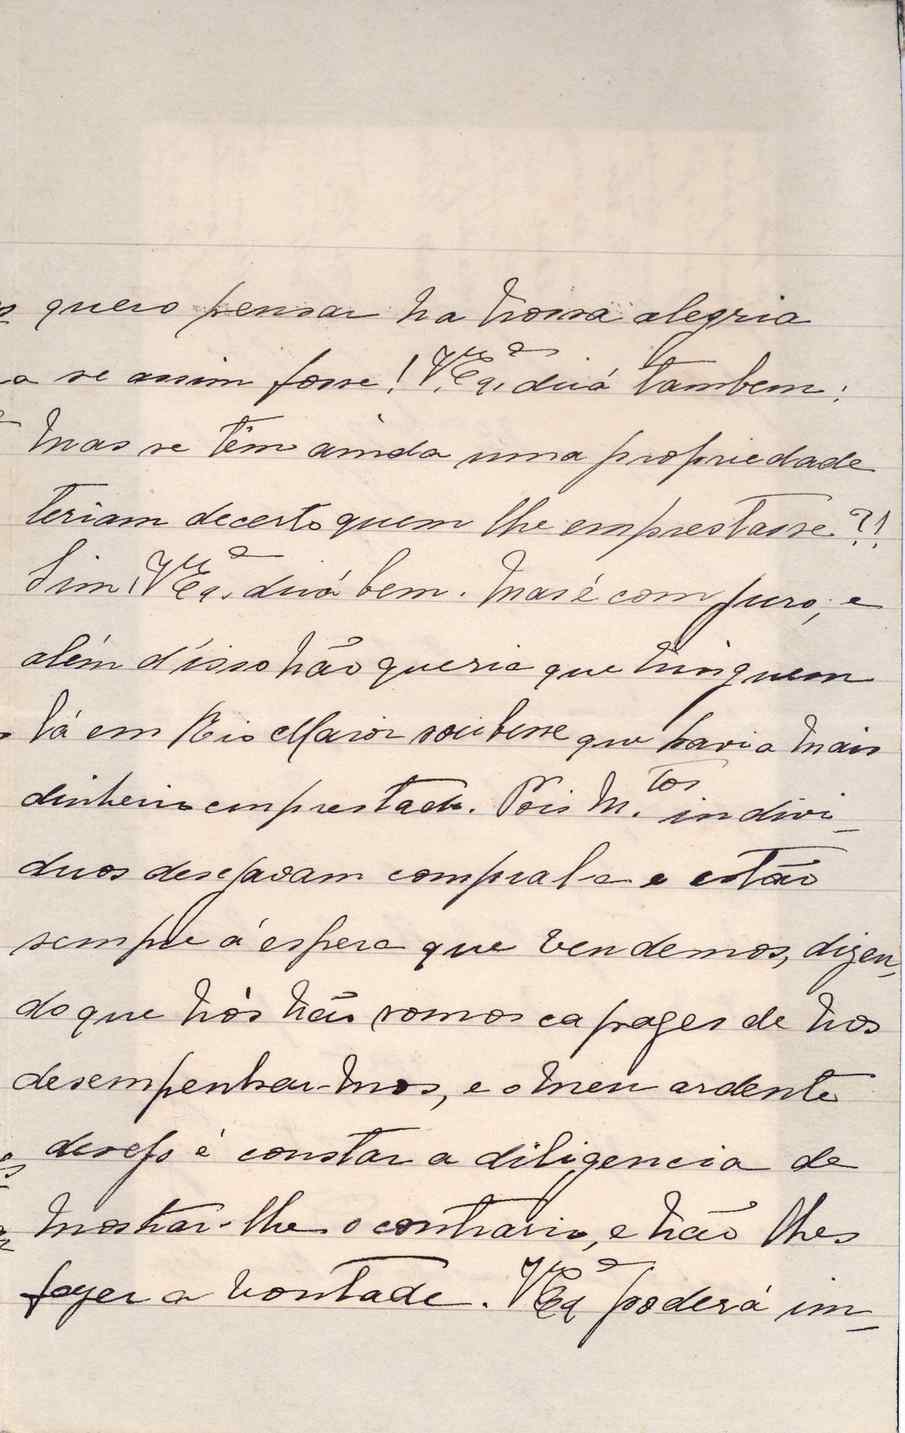 quero pensar na nossa alegria
se assim fosse! V. Ex.ª dirá tambem:
Mas se têm ainda uma propriedade
teriam decerto quem lhe emprestasse?!
Sim, V Ex.ª dirá bem. Mas é com juro, e
além d'isso não queria que ninguem
lá em Rio Maior soubesse que havia mais
dinheiro emprestado. Pois m.tos indivi-
duos desejavam compral-a e estão
sempre á espera que vendemos, dizen-
do que nós não somos capazes de nos
desempenhar-mos, e o meu ardente
desejo é constar a diligencia de
mostrar-lhe o contrario, e não lhes
fazer a vontade. V Ex.ª poderá im-